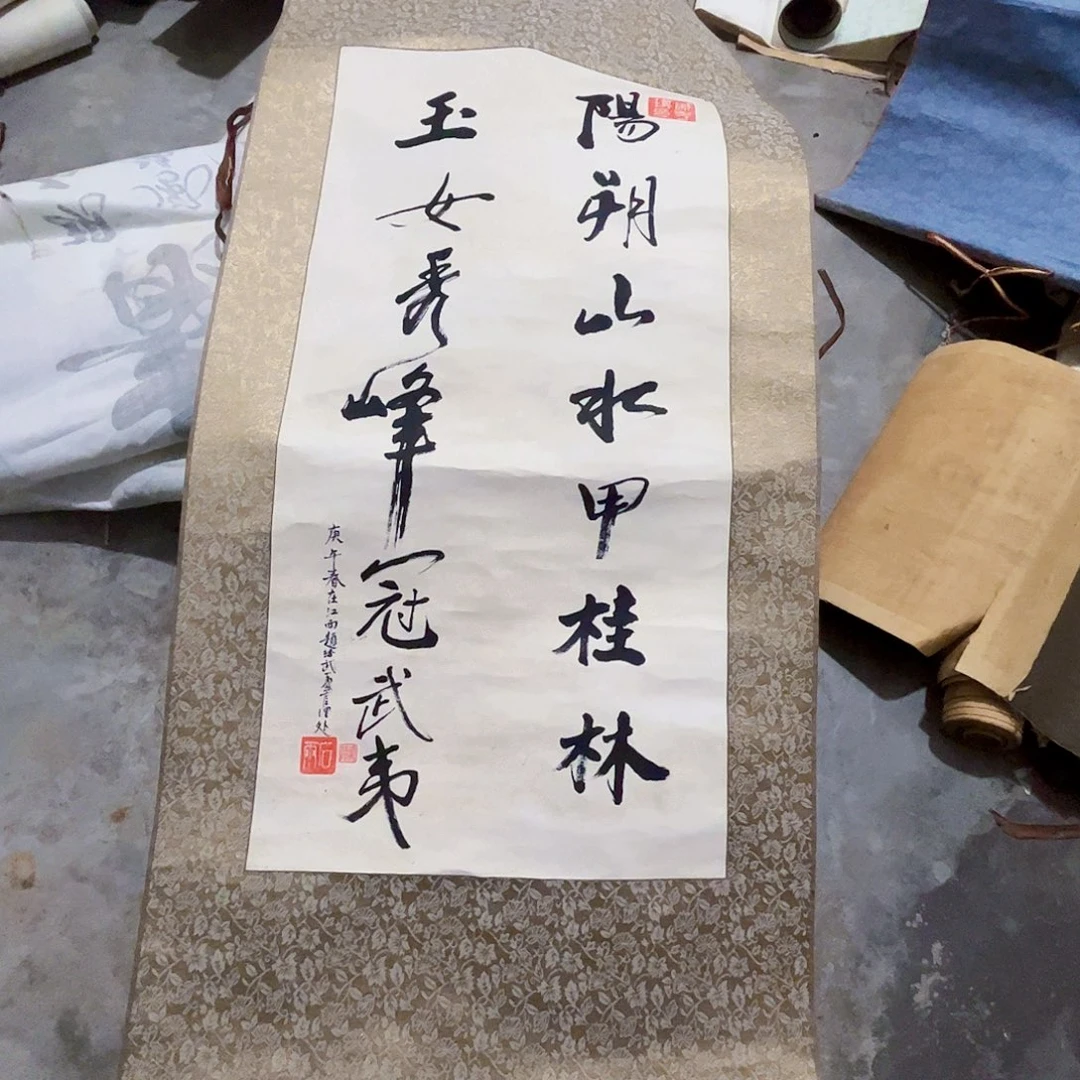 陽朔山水甲桂林
玉女秀峰冠武夷
庚午春在江西題